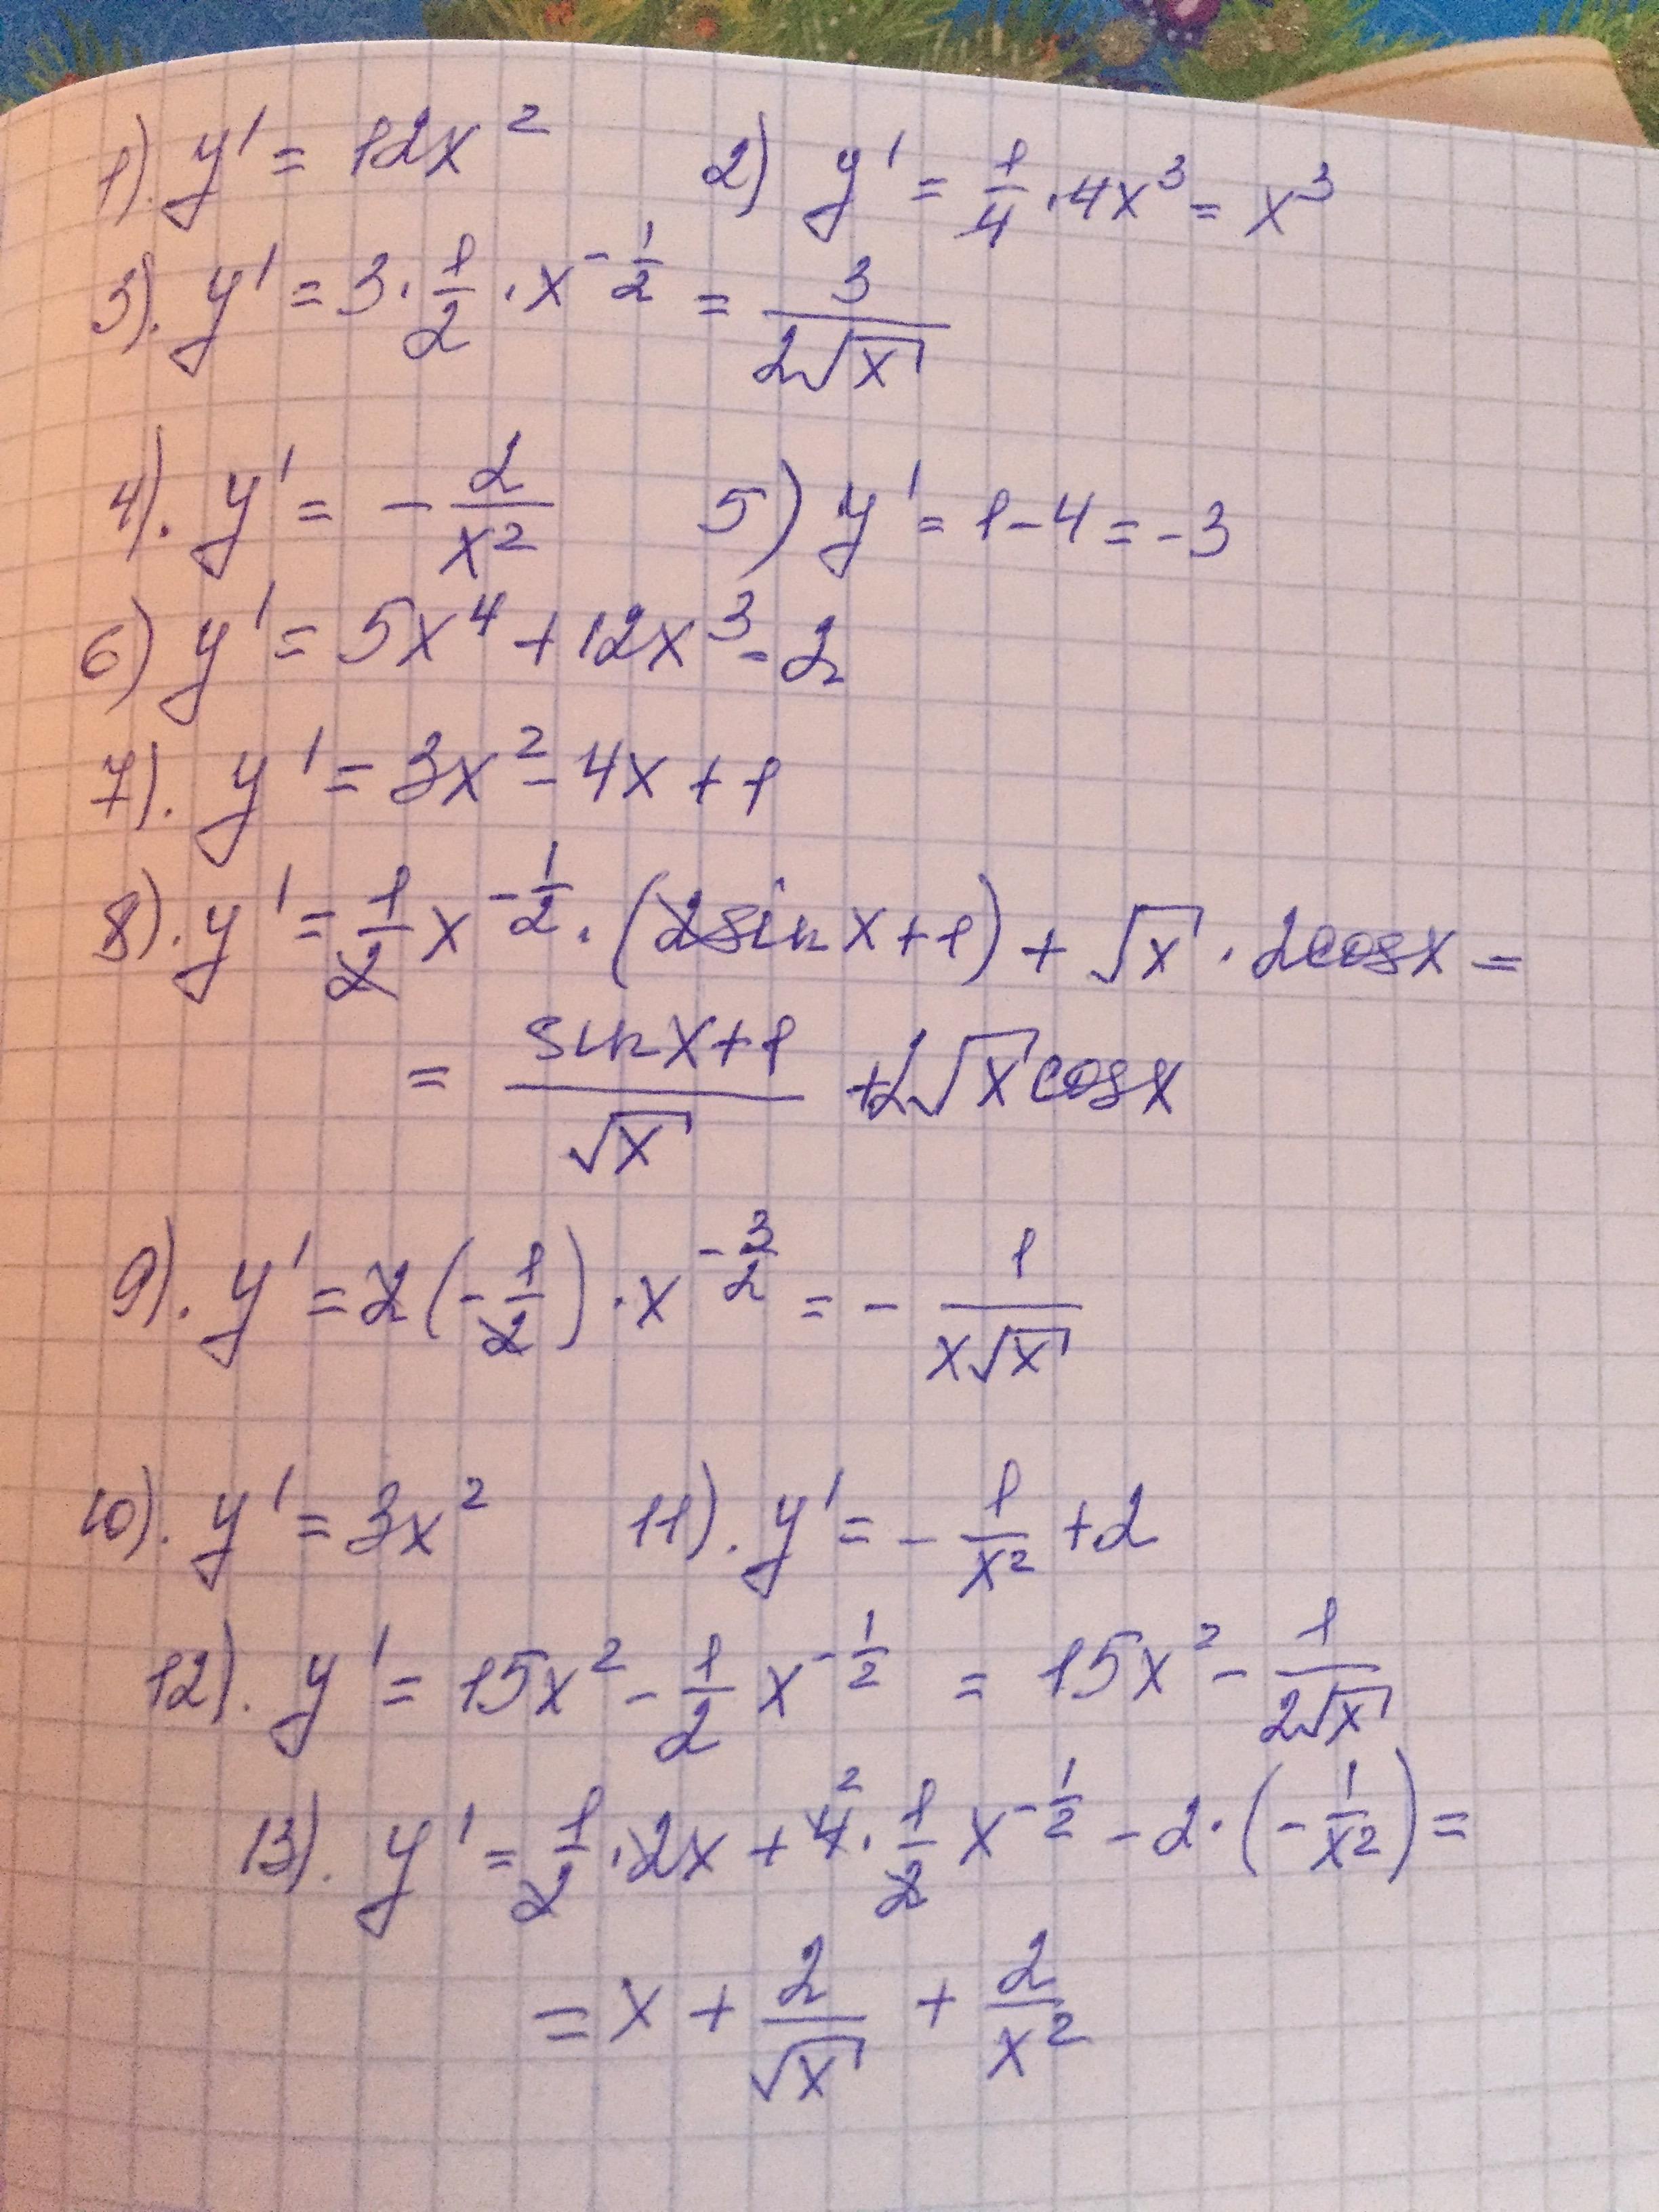 1). y' = 12x² 2) y' = 1/4 · 4x³ = x³
3). y' = 3 · 1/2 · x^(-1/2) = 3/(2√x)
4). y' = - 2/x² 5) y' = 1 - 4 = -3
6) y' = 5x⁴ + 12x³ - 2
7). y' = 3x² - 4x + 1
8). y' = 1/2 x^(-1/2) · (2sin x + 1) + √x · 2cos x =
= (sin x + 1)/√x + 2√x cos x
9). y' = 2(-1/2) · x^(-3/2) = - 1/(x√x)
10). y' = 3x² 11). y' = - 1/x² + 2
12). y' = 15x² - 1/2 x^(-1/2) = 15x² - 1/(2√x)
13). y' = 1/2 · 2x + 4² · 1/2 x^(-1/2) - 2 · (- 1/x²) =
= x + 2/√x + 2/x²